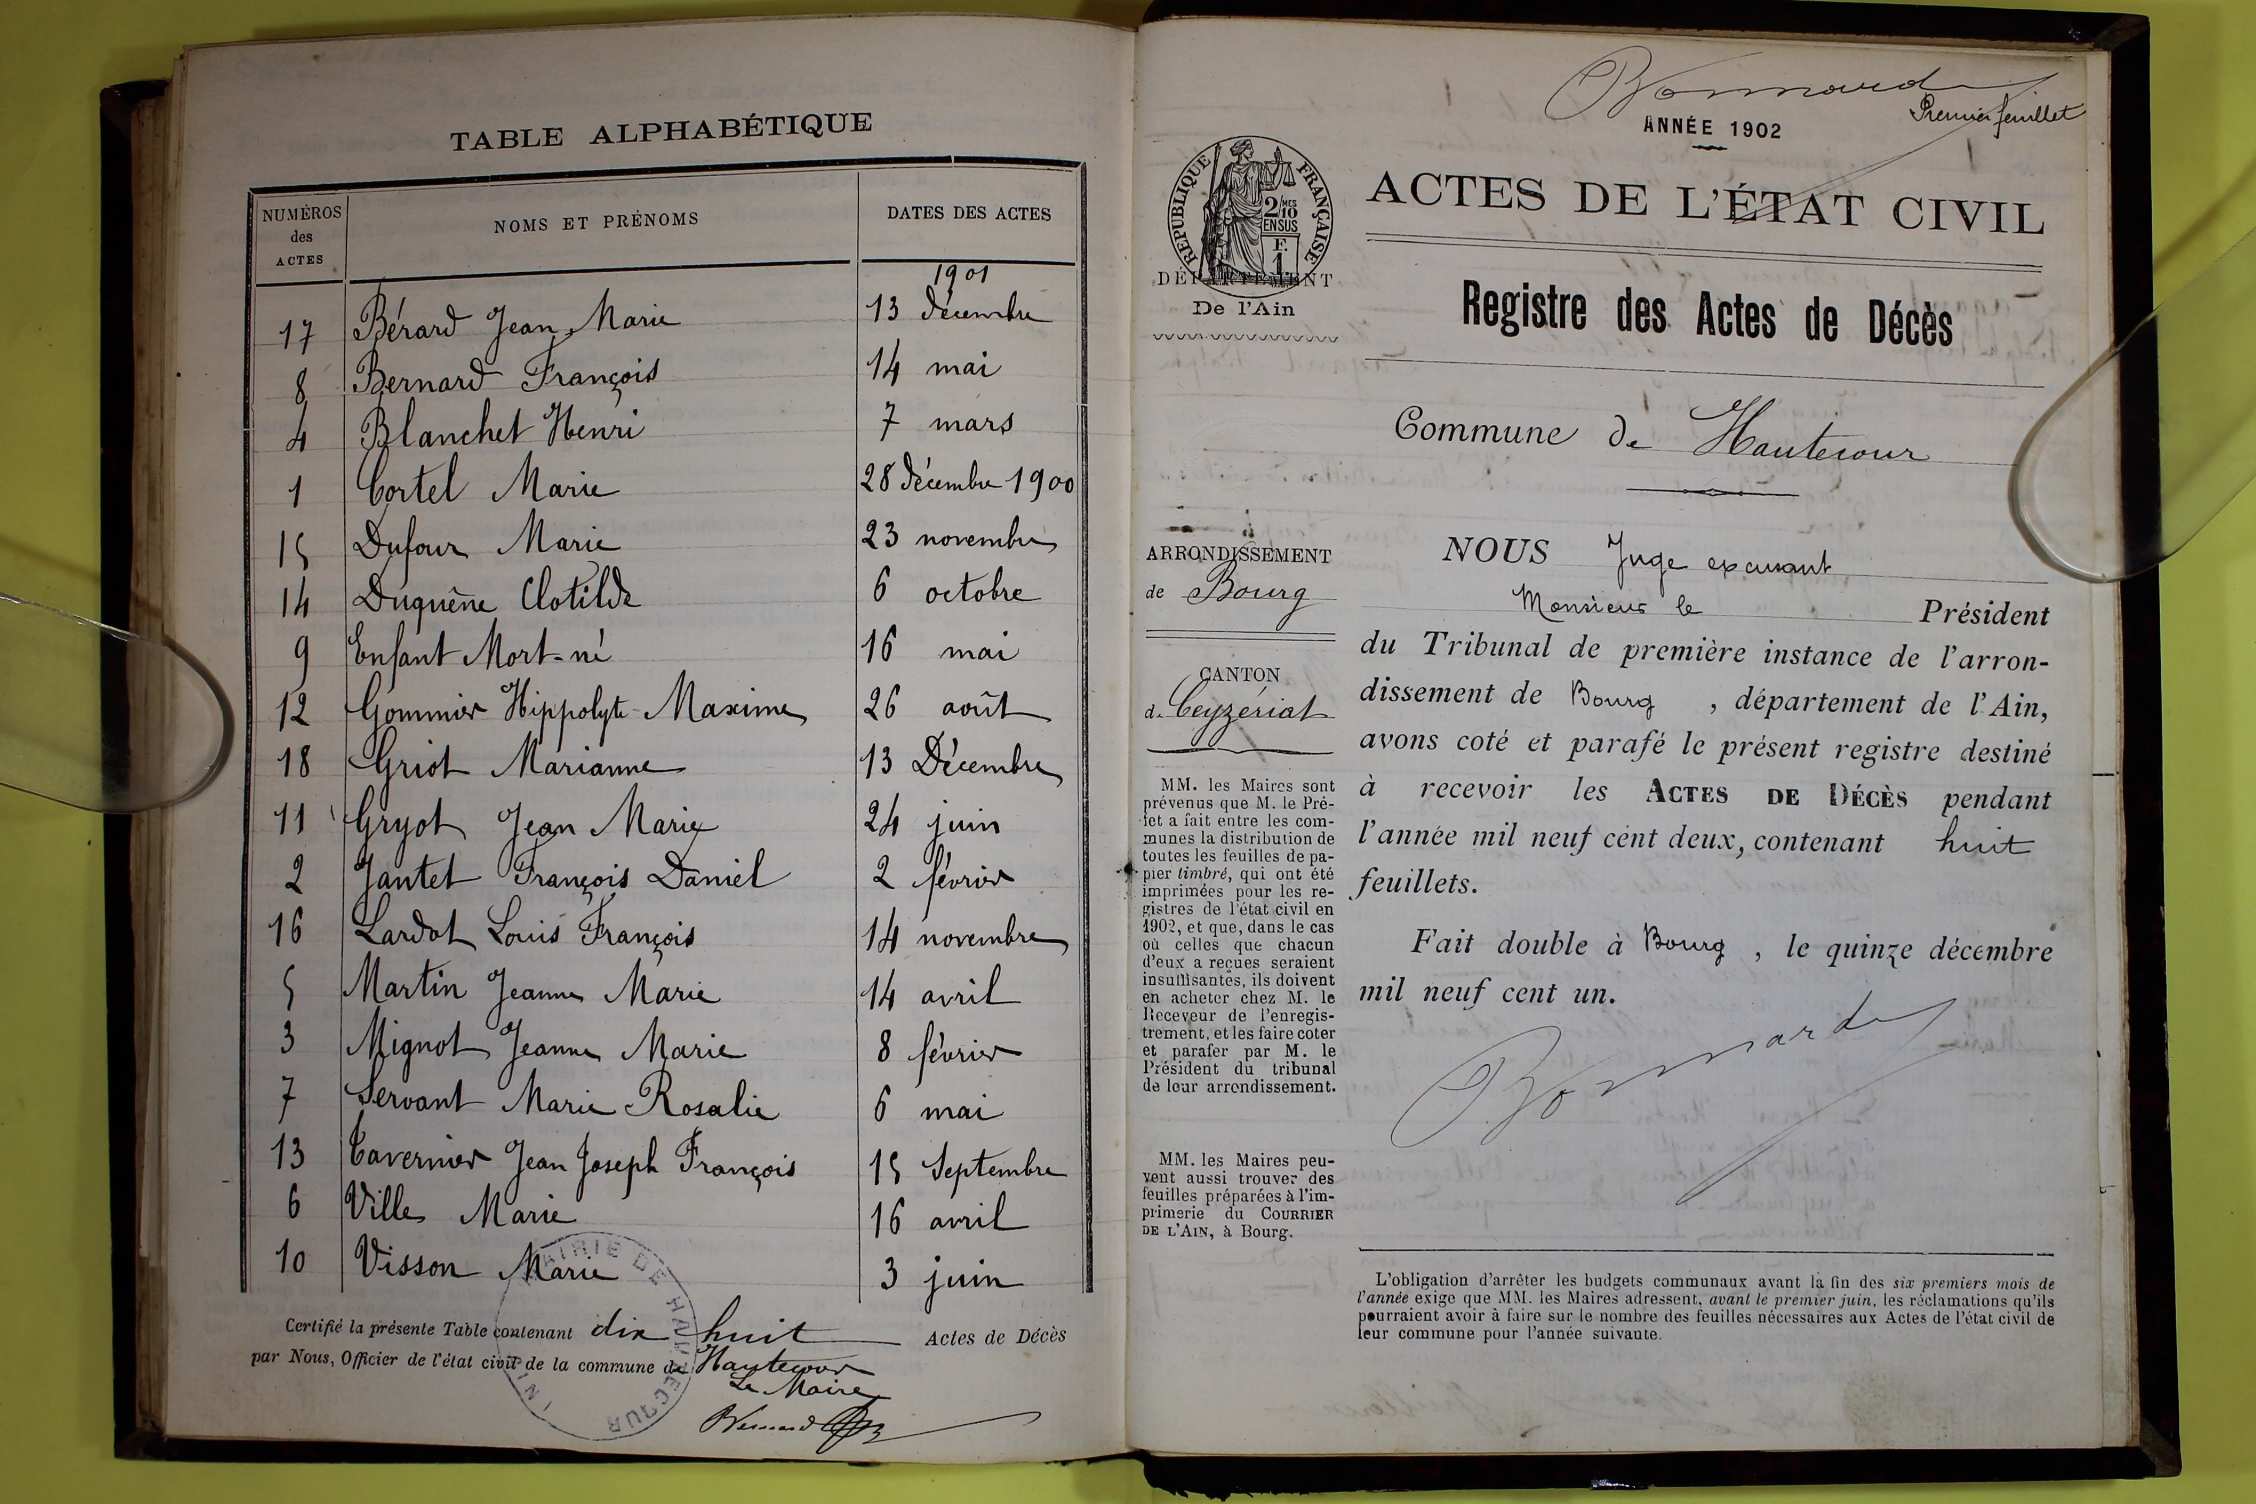 TABLE ALPHABÉTIQUE
NUMÉROS des ACTES NOMS ET PRÉNOMS DATES DES ACTES
1901
17 Bérard Jean Marie 13 décembre
8 Bernard François 14 mai
4 Blanchet Henri 7 mars
1 Cortel Marie 28 décembre 1900
15 Dufour Marie 23 novembre
14 Duquêne Clotilde 6 octobre
9 Enfant Mort-né 16 mai
12 Gommier Hippolyte Maxime 26 août
18 Griot Marianne 13 Décembre
11 Gryot Jean Marie 24 juin
2 Jantet François Daniel 2 février
16 Lardot Louis François 14 novembre
5 Martin Jeanne Marie 14 avril
3 Mignot Jeanne Marie 8 février
7 Servant Marie Rosalie 6 mai
13 Tavernier Jean Joseph François 15 Septembre
6 Ville Marie 16 avril
10 Visson Marie 3 juin
MAIRIE DE HAUTECOUR
Certifié la présente Table contenant dix huit Actes de Décès
par Nous, Officier de l'état civil de la commune de Hautecour
Le Maire
Bonnard
Premier feuillet
ANNÉE 1902
RÉPUBLIQUE FRANÇAISE
2/10 MES
EN SUS
F.
1
DÉPARTEMENT
De l'Ain
ACTES DE L'ÉTAT CIVIL
Registre des Actes de Décès
Commune de Hautecour
ARRONDISSEMENT
de Bourg
CANTON
de Ceyzériat
MM. les Maires sont
prévenus que M. le Pré-
fet a fait entre les com-
munes la distribution de
toutes les feuilles de pa-
pier timbré, qui ont été
imprimées pour les re-
gistres de l'état civil en
1902, et que, dans le cas
où celles que chacun
d'eux a reçues seraient
insuffisantes, ils doivent
en acheter chez M. le
Receveur de l'enregis-
trement, et les faire coter
et parafer par M. le
Président du tribunal
de leur arrondissement.
MM. les Maires peu-
vent aussi trouver des
feuilles préparées à l'im-
primerie du COURRIER
DE L'AIN, à Bourg.
NOUS Juge excusant
Monsieur le Président
du Tribunal de première instance de l'arron-
dissement de Bourg , département de l'Ain,
avons coté et parafé le présent registre destiné
à recevoir les ACTES DE DÉCÈS pendant
l'année mil neuf cent deux, contenant huit
feuillets.
Fait double à Bourg , le quinze décembre
mil neuf cent un.
Bonnard
L'obligation d'arrêter les budgets communaux avant la fin des six premiers mois de
l'année exige que MM. les Maires adressent, avant le premier juin, les réclamations qu'ils
pourraient avoir à faire sur le nombre des feuilles nécessaires aux Actes de l'état civil de
leur commune pour l'année suivante.